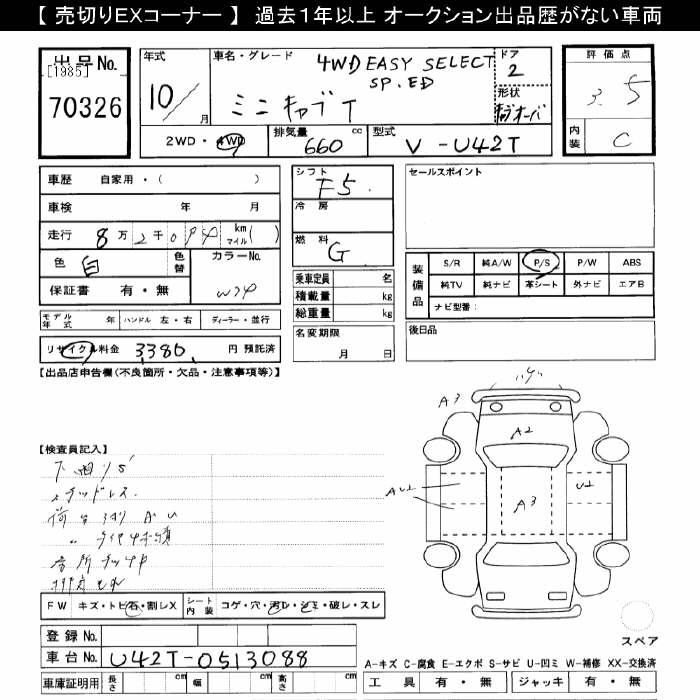 【 売切りEXコーナー 】 過去１年以上 オークション出品歴がない車両
出品No.
[1985]
70326
年式
10/
月
車名・グレード
4WD EASY SELECT
SP.ED
ミニキャブT
ドア
2
形状
評価点
3.5
内装
C
2WD・4WD
排気量
660
cc
型式
V-U42T
車歴 自家用・( )
車検 年 月
走行 8万2千
km マイル( )
色 白
色替
カラーNo.
保証書 有・無
W
モデル年式 年
ハンドル 左・右
ディーラー・並行
リサイクル料金 3380. 円 預託済
シフト
F5.
冷房
燃料
G
乗車定員 名
積載量 kg
総重量 kg
名変期限
月 日
セールスポイント
装備品
S/R 純A/W P/S P/W ABS
純TV 純ナビ 革シート 外ナビ エアB
ナビ型番:
後日品
【出品店申告欄(不良箇所・欠品・注意事項等)】
【検査員記入】
下回りS
スタッドレス
FW キズ・トビ石・割レX
シート内装 コゲ・穴・汚レ・シミ・破レ・スレ
A3
A2
A3
AU2
U2
スペア
登録No.
車台No. U42T-0513088
A-キズ C-腐食 E-エクボ S-サビ U-凹ミ W-補修 XX-交換済
車庫証明用 長さ cm 幅 cm 高さ cm
工具 有・無 ジャッキ 有・無